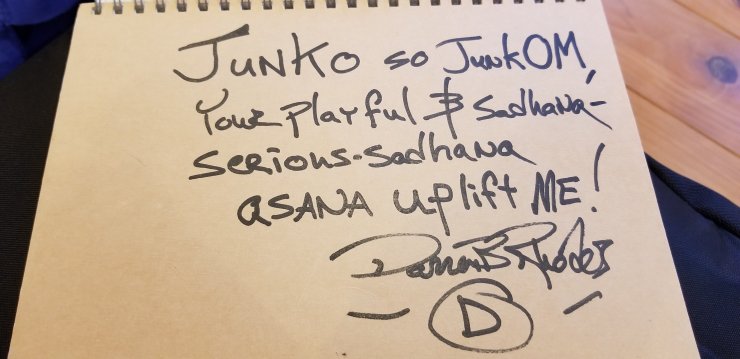 JUNKO so JunkOM,
Your Playful & Sadhana-
serious-sadhana
ASANA uplift ME!
Darren Rhodes
- D -